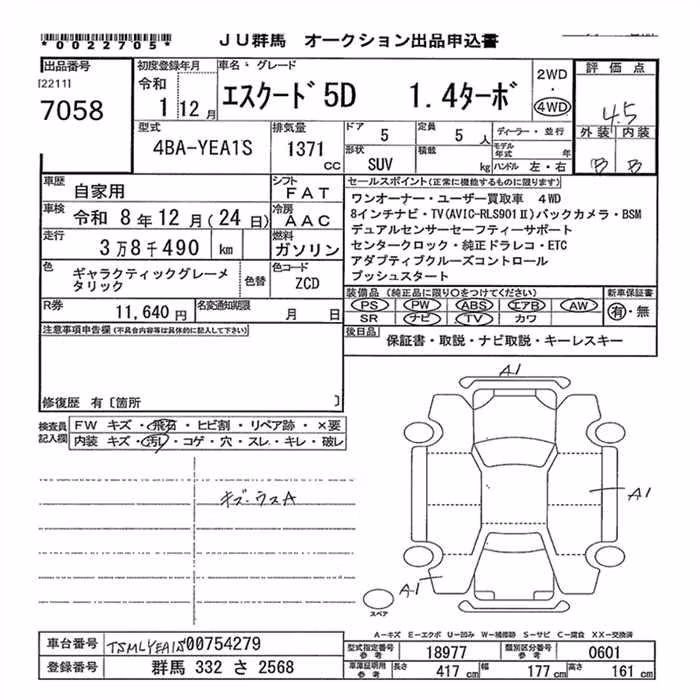 *0022705*
JU群馬 オークション出品申込書
出品番号
[2211]
7058
初度登録年月
令和
1 12月
車名・グレード
エスクード 5D 1.4ターボ
2WD
・
4WD
評価点
4.5
外装 内装
B B
型式
4BA-YEA1S
排気量
1371
cc
ドア
5
定員
5 人
形状
SUV
積載
kg
ディーラー・並行
モデル年式 年
ハンドル 左・右
車歴
自家用
シフト
FAT
車検
令和 8年12月(24日)
冷房
AAC
走行
3万8千490 km
燃料
ガソリン
色
ギャラクティックグレーメタリック
色替
色コード
ZCD
R券
11,640円
名変通知期限
月 日
セールスポイント(正常に機能するものに限ります)
ワンオーナー・ユーザー買取車 4WD
8インチナビ・TV(AVIC-RLS901Ⅱ)バックカメラ・BSM
デュアルセンサーセーフティーサポート
センタークロック・純正ドラレコ・ETC
アダプティブクルーズコントロール
プッシュスタート
装備品(純正品に限り○をつけてください)
新車保証書
PS PW ABS エアB AW
SR ナビ TV カワ
有・無
後日品
保証書・取説・ナビ取説・キーレスキー
注意事項申告欄(不具合内容等は具体的に記入して下さい)
修復歴 有〔箇所 〕
検査員記入欄
FW キズ・飛石・ヒビ割・リペア跡・×要
内装 キズ・汚レ・コゲ・穴・スレ・キレ・破レ
キズ・ウスA
A1
A1
A1
スペア
A-キズ E-エクボ U-凹み W-補修跡 S-サビ C-腐食 XX-交換済
車台番号
TSMLYEA1S00754279
登録番号
群馬 332 さ 2568
型式指定番号
参考
18977
類別区分番号
参考
0601
車庫証明用
参考
長さ
417 cm
幅
177 cm
高さ
161 cm